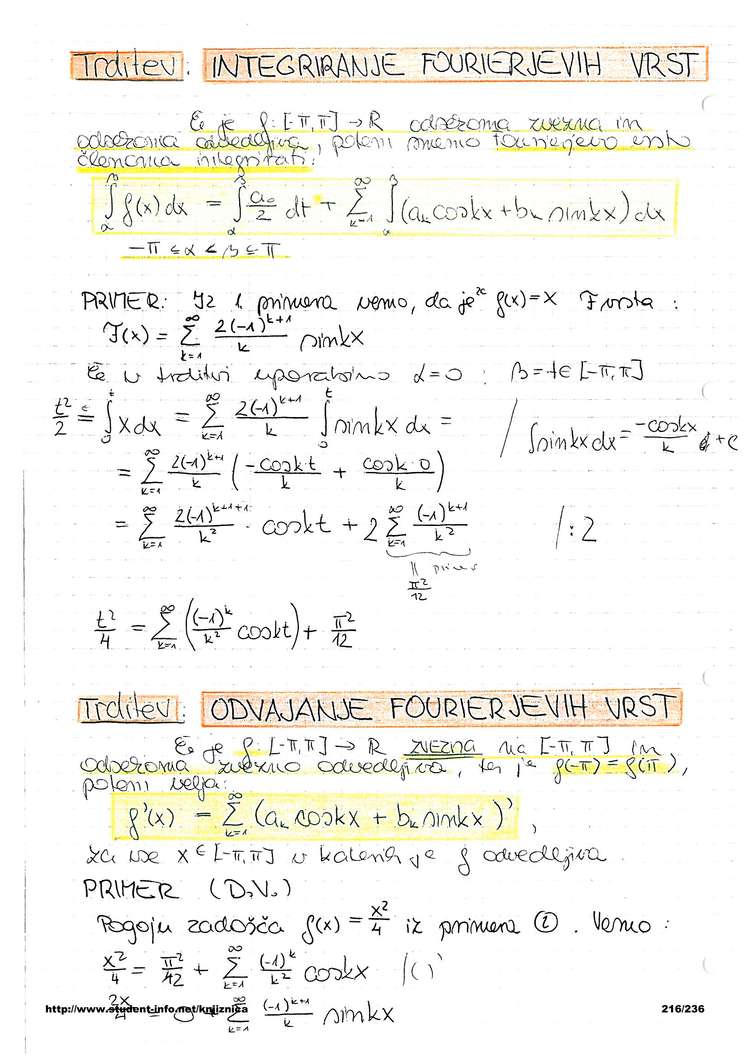 Trditev: INTEGRIRANJE FOURIERJEVIH VRST
Če je f: [-π, π] → R odsekoma zvezna in
odsekoma odvedljiva, potem smemo fourierjevo vrsto
členoma integrirati:
∫_α^β f(x) dx = ∫_α^β a₀/2 dt + ∑_{k=1}^∞ ∫_α^β (aₖ cos kx + bₖ sin kx) dx
-π ≤ α < β ≤ π
PRIMER: Iz 1. primera vemo, da je za f(x) = x F vrsta :
F(x) = ∑_{k=1}^∞ 2(-1)^{k+1}/k sin kx
Če v trditvi uporabimo α = 0 : β = t ∈ [-π, π]
t²/2 = ∫_0^t x dx = ∑_{k=1}^∞ 2(-1)^{k+1}/k ∫_0^t sin kx dx = / ∫ sin kx dx = -cos kx/k + C
= ∑_{k=1}^∞ 2(-1)^{k+1}/k (-cos k·t/k + cos k·0/k)
= ∑_{k=1}^∞ 2(-1)^{k+1+1}/k² · cos kt + 2 ∑_{k=1}^∞ (-1)^{k+1}/k² /:2
π²/12
t²/4 = ∑_{k=1}^∞ ((-1)^k/k² cos kt) + π²/12
Trditev: ODVAJANJE FOURIERJEVIH VRST
Če je f: [-π, π] → R ZVEZNA na [-π, π] in
odsekoma zvezno odvedljiva, ter je f(-π) = f(π),
potem velja:
f'(x) = ∑_{k=1}^∞ (aₖ cos kx + bₖ sin kx)' ,
za vse x ∈ [-π, π] v katerih je f odvedljiva.
PRIMER (D.V.)
Pogoju zadošča f(x) = x²/4 iz primera ②. Vemo :
x²/4 = π²/12 + ∑_{k=1}^∞ (-1)^k/k² cos kx /( )'
2x/4 = 0 + ∑_{k=1}^∞ (-1)^{k+1}/k sin kx
http://www.student-info.net/knjiznica 216/236